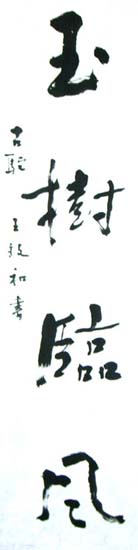 玉樹臨風
古驼 王段和書